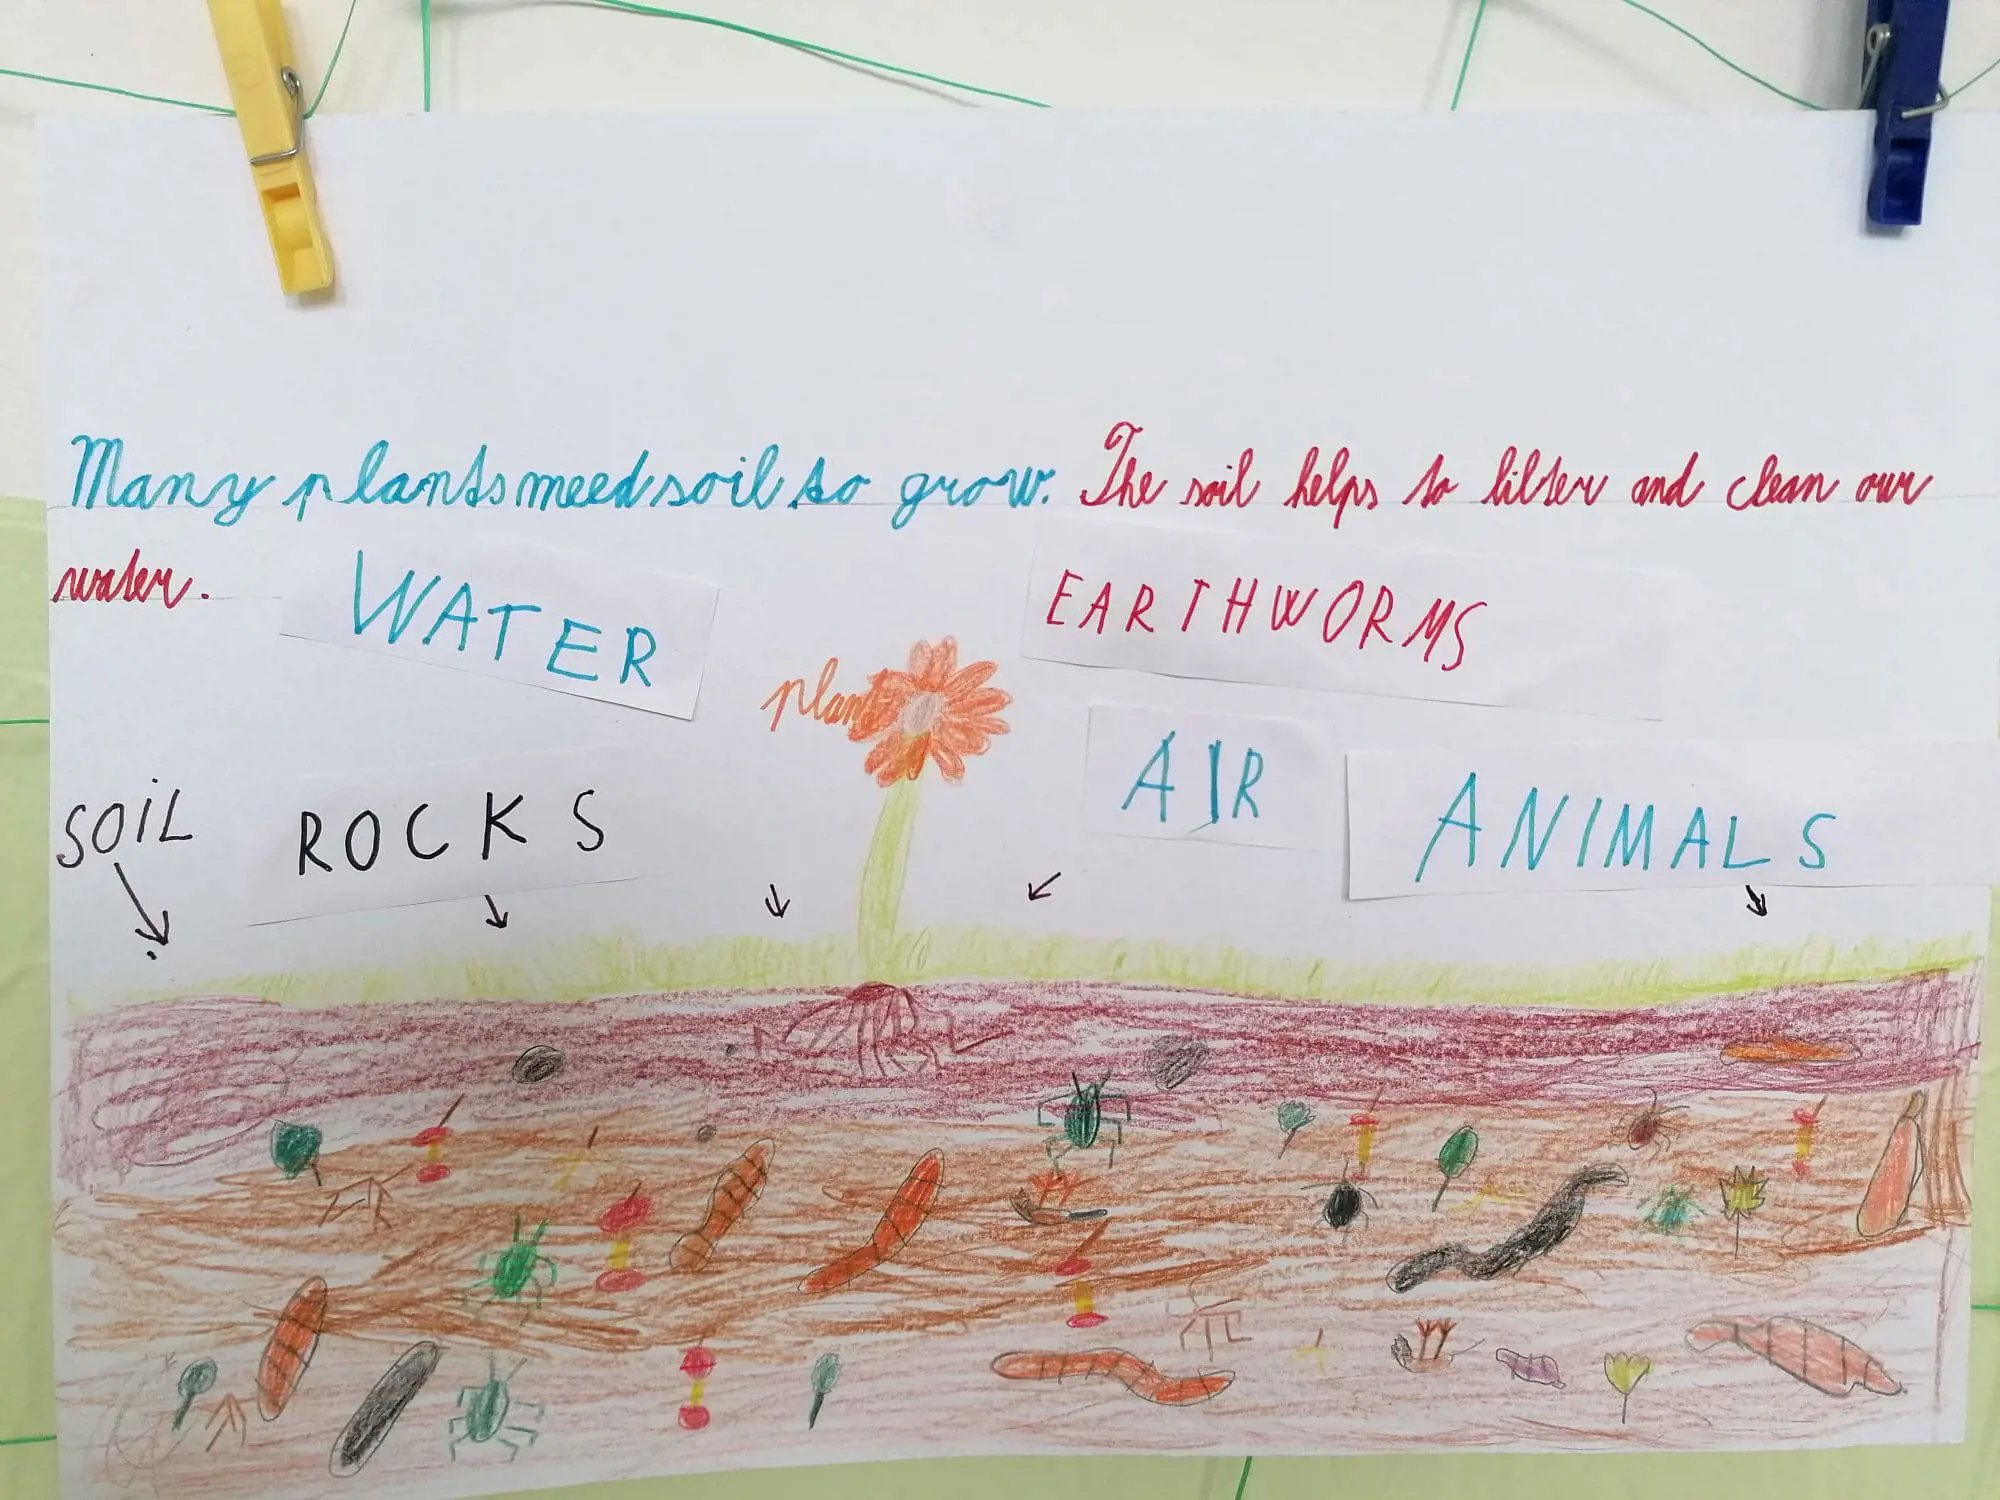 Many plants need soil to grow. The soil helps to filter and clean our
water.
WATER
EARTHWORMS
plant
AIR
SOIL
ROCKS
ANIMALS